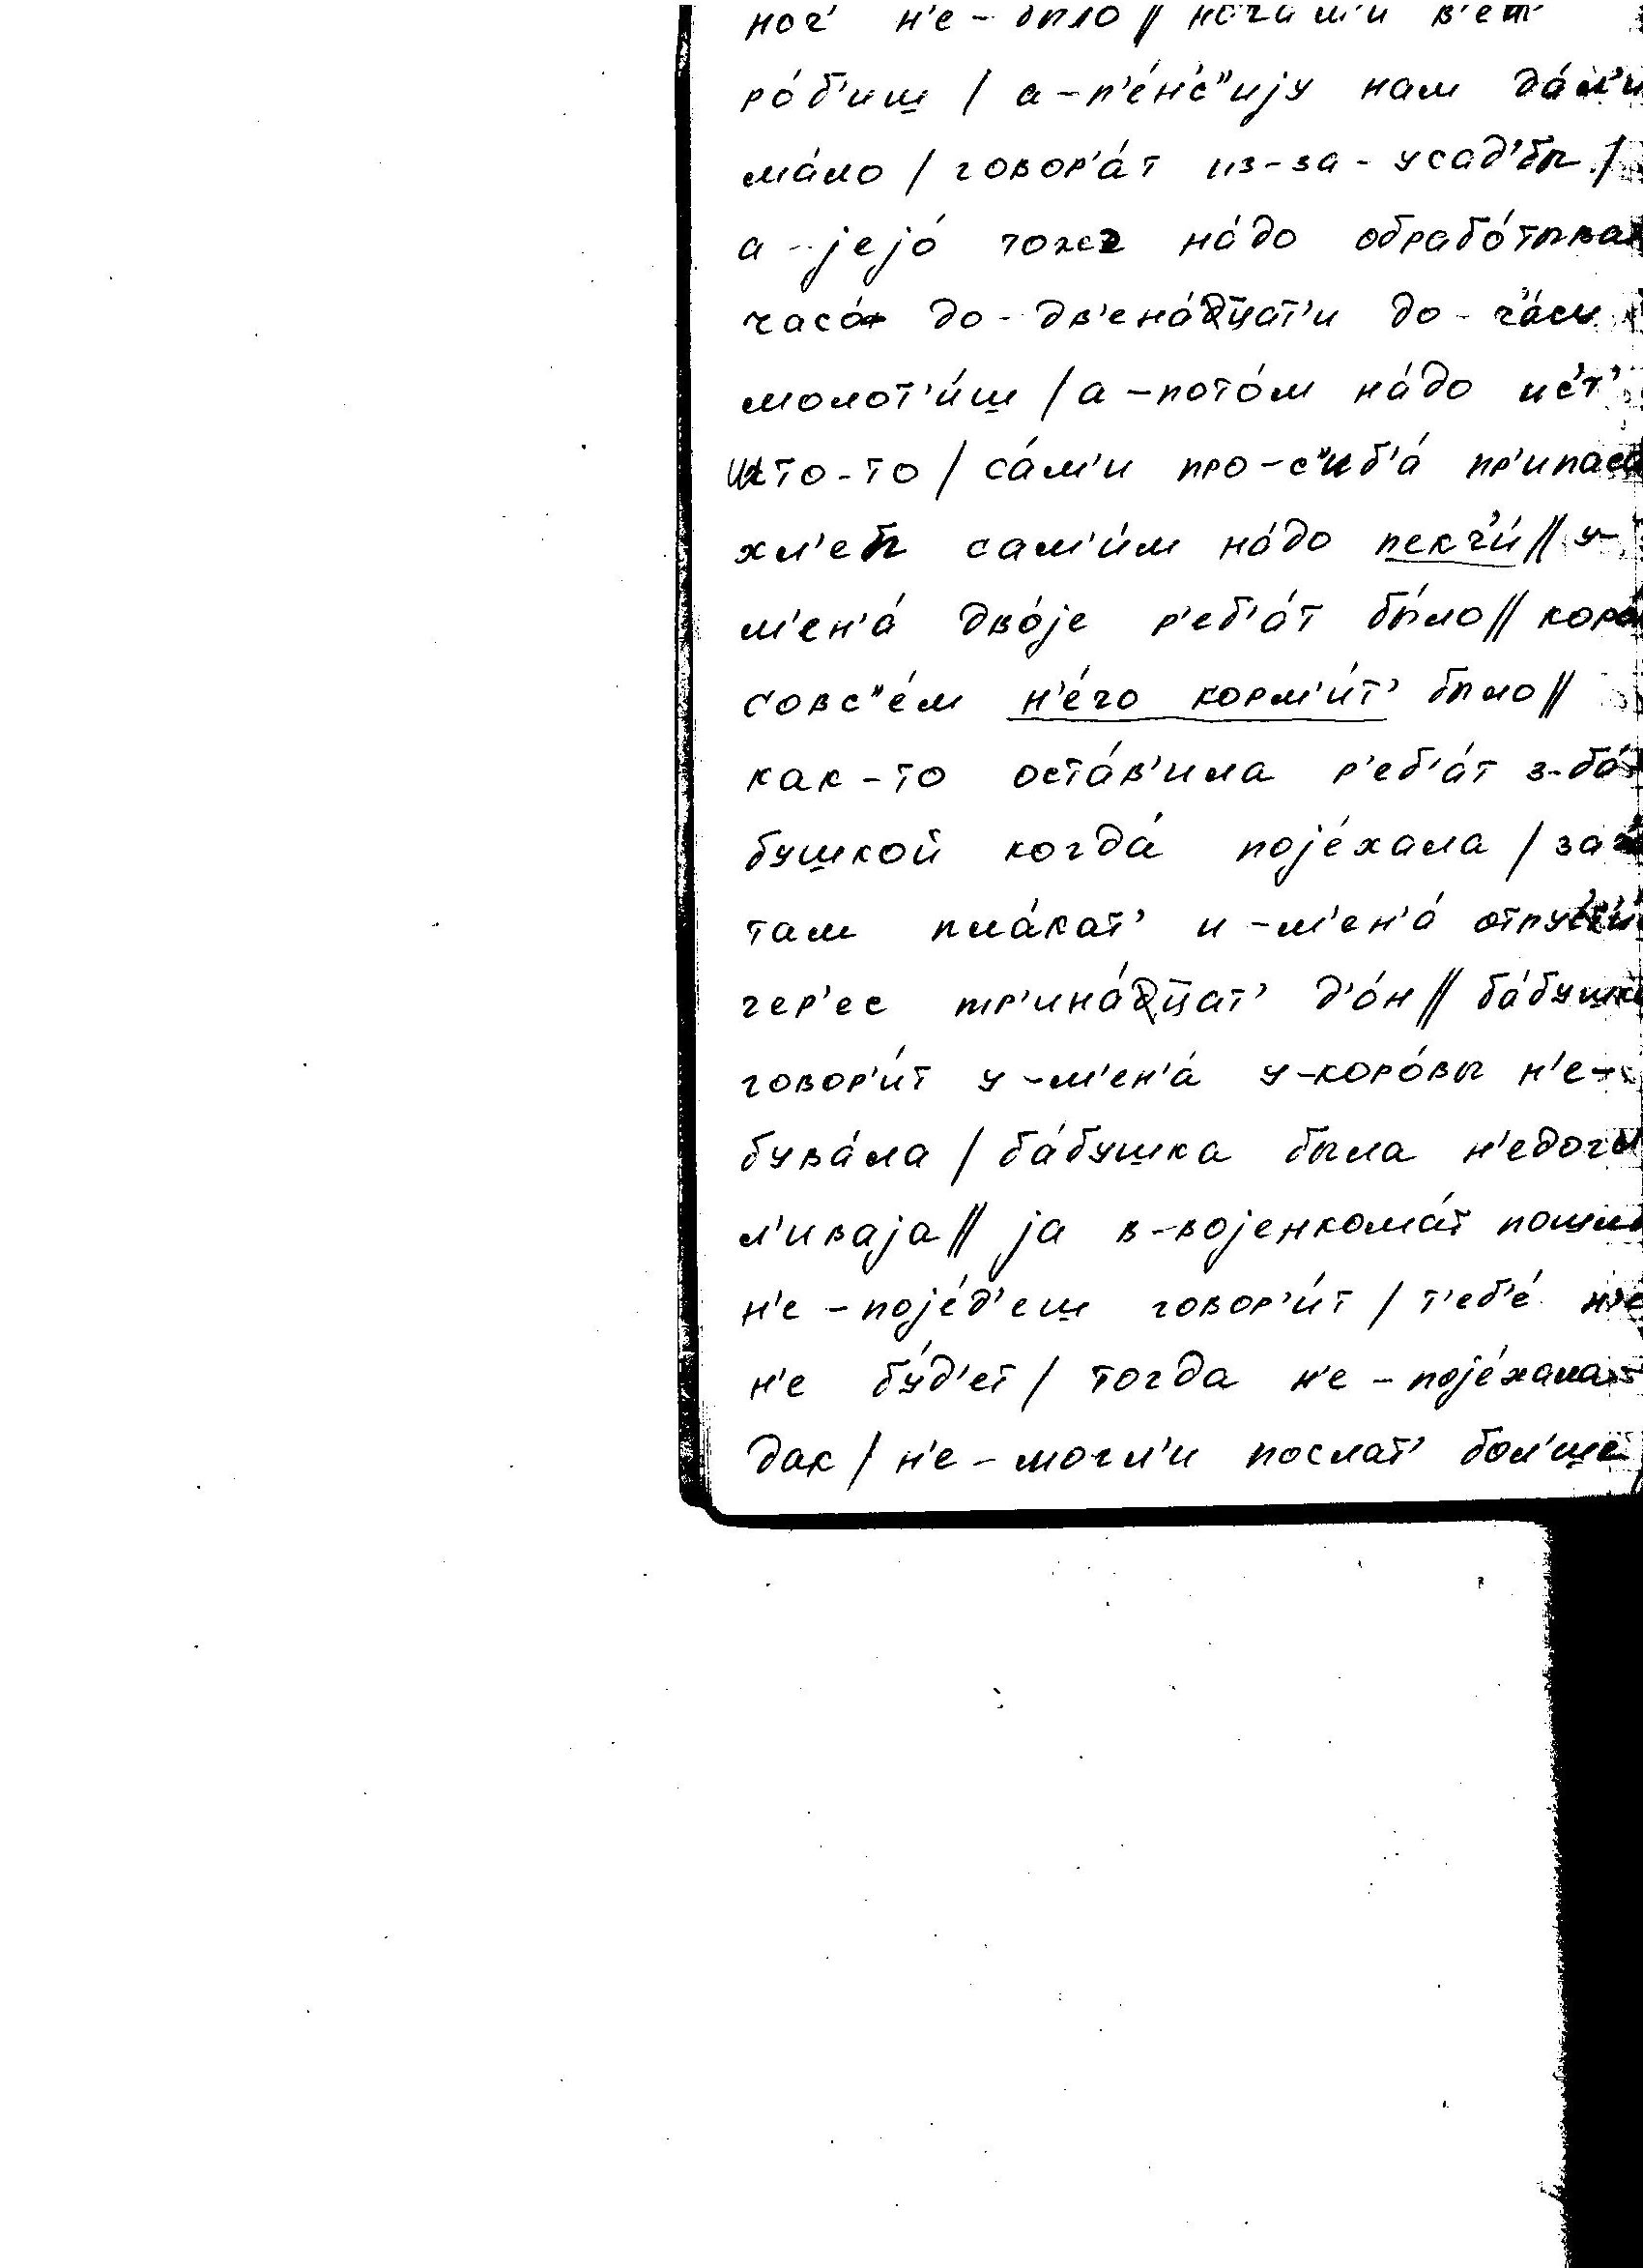 ноч' н'е-было // ноч'ам'и в'ет'
ро́б'иш / а-п'е́н'с"ију нам да́л'и
ма́ло / говор'а́т из-за-усад'бы /
а-јејо́ тоже на́до обрабо́тыват
часо́ф до-дв'ена́дцат'и до-ч'а́су
молот'и́ш / а-пото́м на́до ис'т'
што-то / са́м'и про-с"иб'а́ пр'ипас
хл'еп сам'и́м на́до пекч'и́ // у-
м'ен'а́ дво́је р'еб'а́т бы́ло // коро
совс"е́м н'е́чо корм'и́т' было //
как-то оста́в'ила р'еб'а́т з-ба́
бушкой когда́ пoје́хала / за
там пла́кат' и-м'ен'а́ отпус'т'и́
чер'ес тр'ина́дцат' д'о́н // ба́бушка
говор'и́т у-м'ен'а́ у-коро́вы н'е-
бува́ла / ба́бушка была н'едога
л'иваја // ја в-војенкома́т пошла
н'е-поје́д'еш говор'и́т / т'еб'е́
н'е бу́д'ет / тогда н'е-поје́хала
дак / н'е-могл'и послат' бол'ше